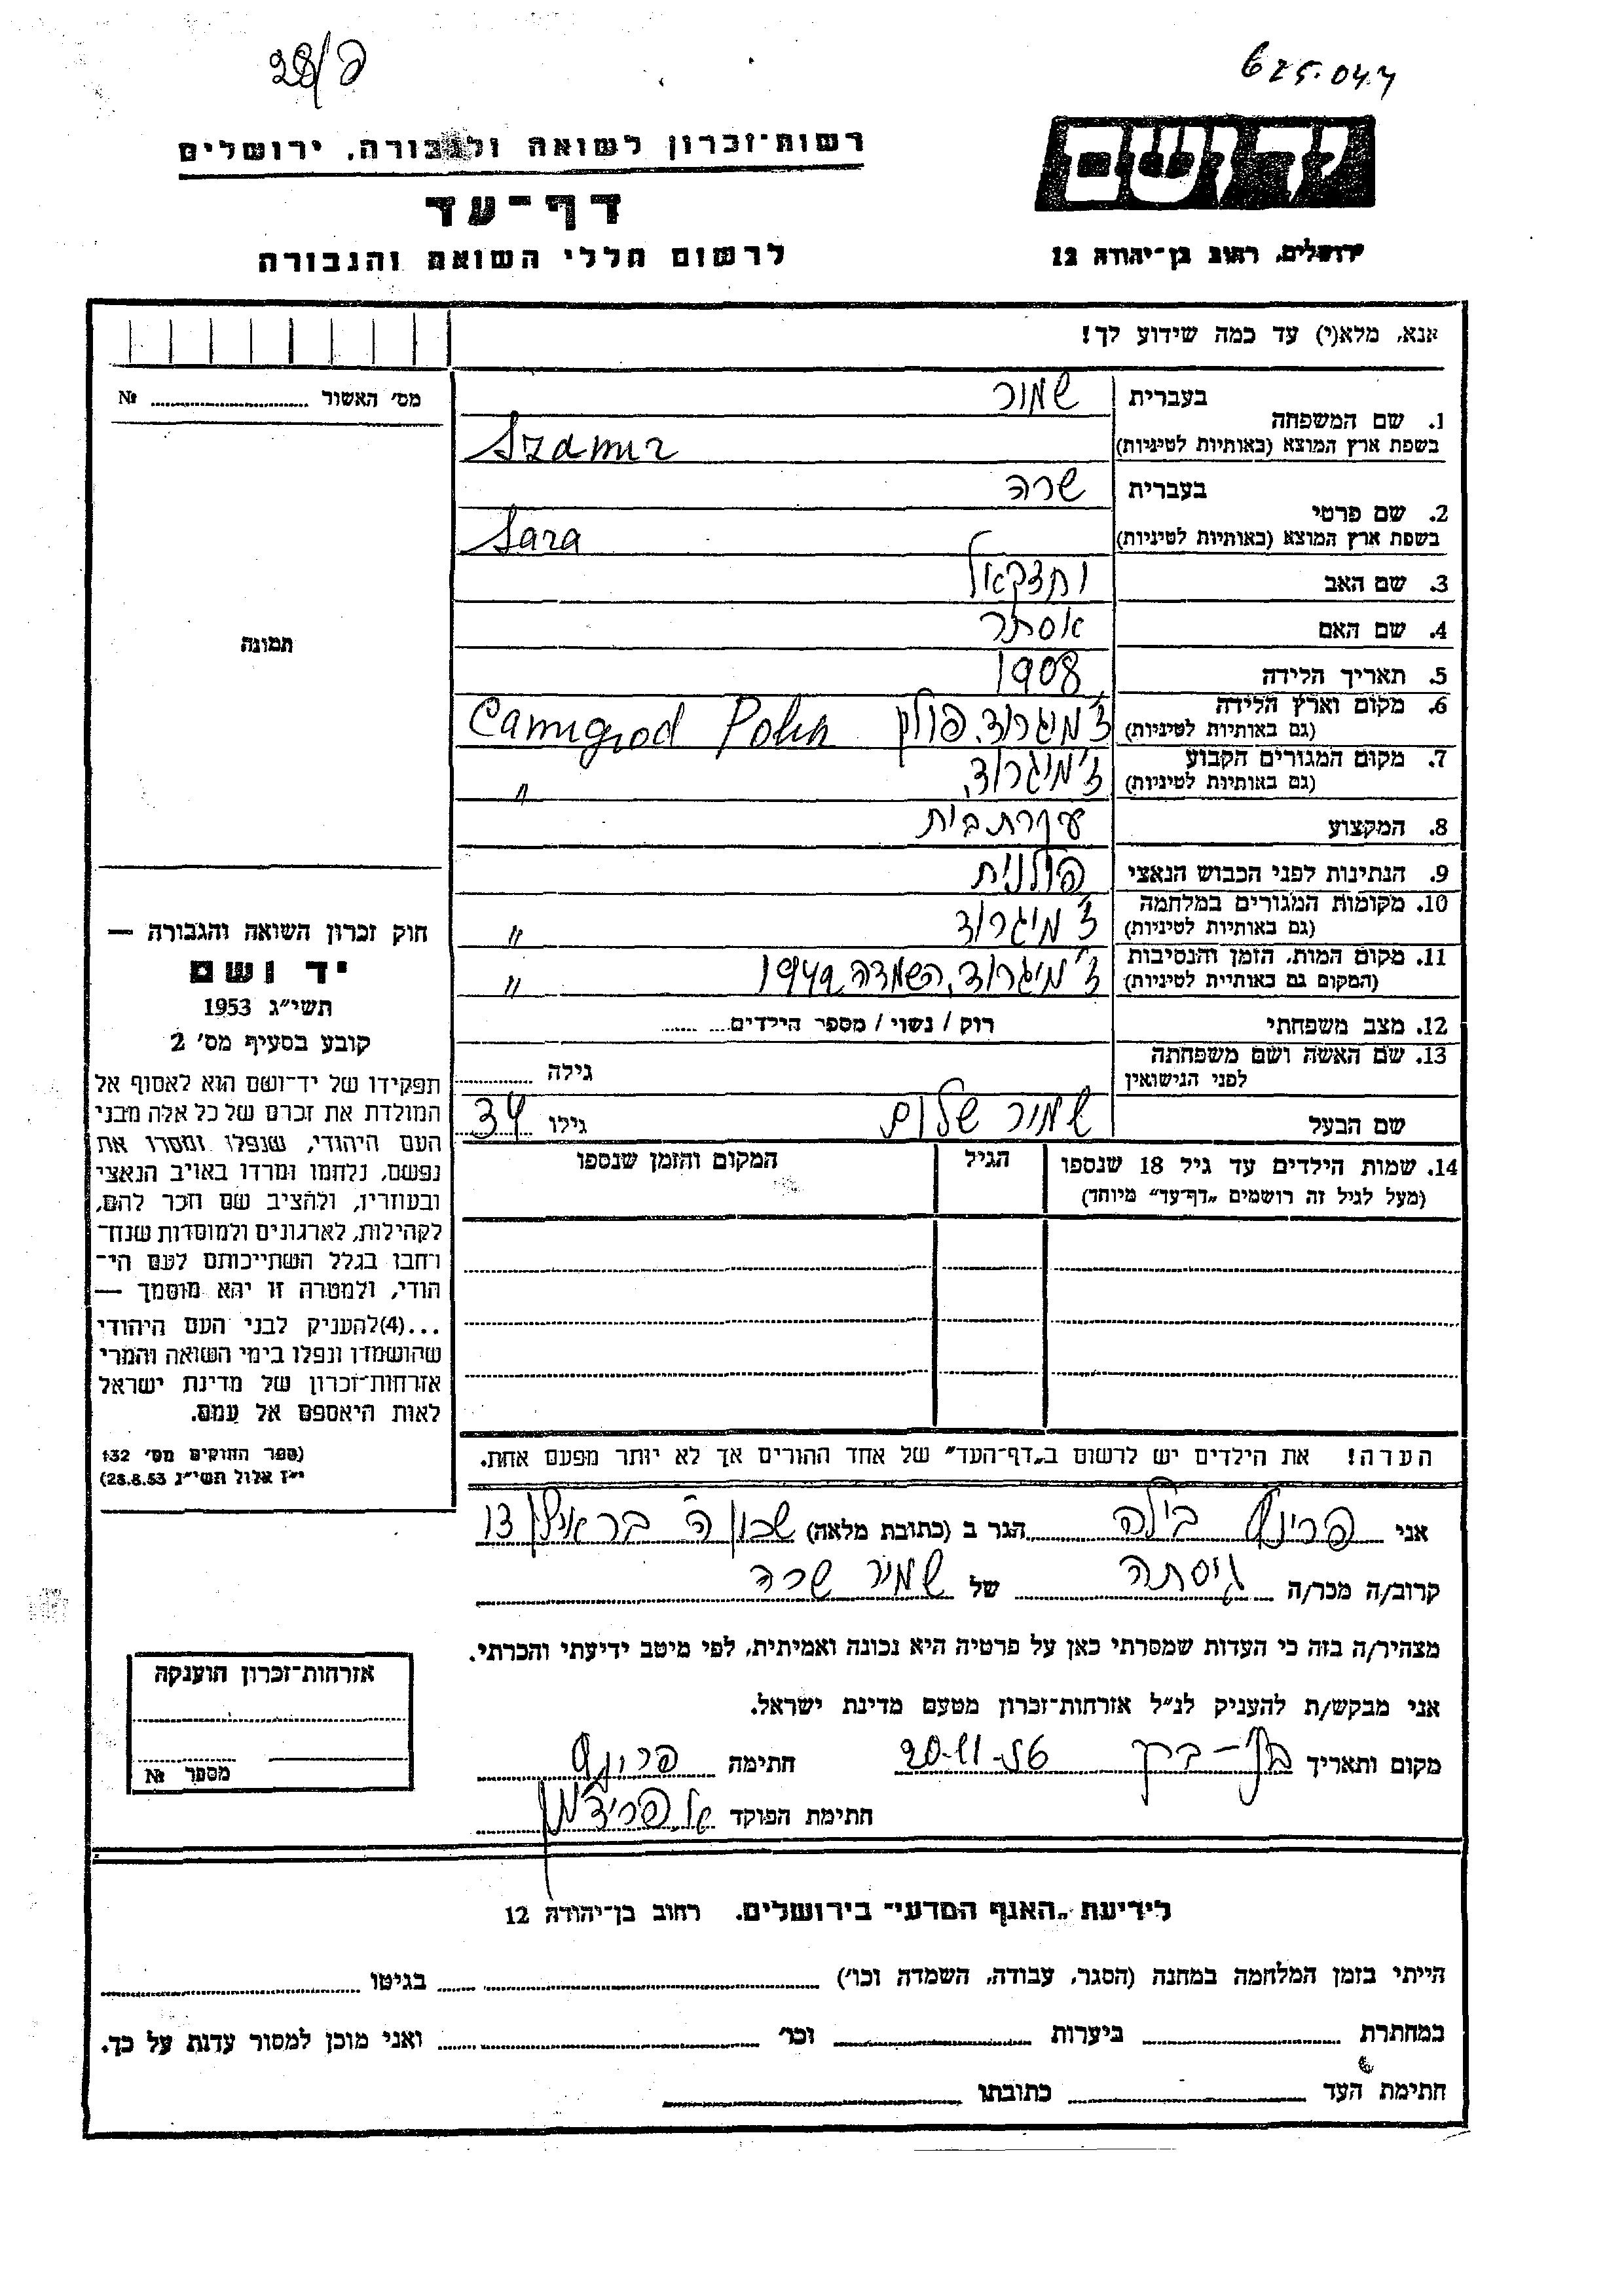 28/פ
625.047
רשות־זכרון לשואה ולגבורה, ירושלים
יד ושם
דף־עד
לרשום חללי השואה והגבורה
ירושלים, רחוב בן־יהודה 12
אנא, מלא(י) עד כמה שידוע לך!
מס׳ האשור № 
1. שם המשפחה
בעברית שמור
בשפת ארץ המוצא (באותיות לטיניות) Szamur
2. שם פרטי
בעברית שרה
בשפת ארץ המוצא (באותיות לטיניות) Sara
3. שם האב יחזקאל
4. שם האם אסתר
5. תאריך הלידה 1908
6. מקום וארץ הלידה
(גם באותיות לטיניות) ז׳מיגרוד, פולין Camigrod Polen
7. מקום המגורים הקבוע
(גם באותיות לטיניות) ז׳מיגרוד, "
8. המקצוע עקרת בית
9. הנתינות לפני הכבוש הנאצי פולנית
10. מקומות המגורים במלחמה
(גם באותיות לטיניות) ז׳מיגרוד "
11. מקום המות, הזמן והנסיבות
(המקום גם באותיות לטיניות) ז׳מיגרוד, השמדה, 1942 "
12. מצב משפחתי רוק / נשוי / מספר הילדים
13. שם האשה ושם משפחתה
לפני הנישואין גילה
שם הבעל שמור שלום גילו 34
14. שמות הילדים עד גיל 18 שנספו
(מעל לגיל זה רושמים „דף־עד״ מיוחד)
הגיל
המקום והזמן שנספו
תמונה
חוק זכרון השואה והגבורה —
יד ושם
תשי״ג 1953
קובע בסעיף מס׳ 2
תפקידו של יד־ושם הוא לאסוף אל
המולדת את זכרם של כל אלה מבני
העם היהודי, שנפלו ומסרו את
נפשם, נלחמו ומרדו באויב הנאצי
ובעוזריו, ולהציב שם וזכר להם,
לקהילות, לארגונים ולמוסדות שנח־
רחבו בגלל השתייכותם לעם הי־
הודי, ולמטרה זו יהא מוסמך —
...(4)להעניק לבני העם היהודי
שהושמדו ונפלו בימי השואה והמרי
אזרחות־זכרון של מדינת ישראל
לאות היאספם אל עמם.
(ספר החוקים מס׳ 132
י״ז אלול תשי״ג 28.8.53)
הערה! את הילדים יש לרשום ב„דף־העד״ של אחד ההורים אך לא יותר מפעם אחת.
אני בילה הגר ב (כתובת מלאה) שכון ה 13
קרוב/ה מכר/ה גיסתה של שמיר שרה
מצהיר/ה בזה כי העדות שמסרתי כאן על פרטיה היא נכונה ואמיתית, לפי מיטב ידיעתי והכרתי.
אני מבקש/ת להעניק לנ״ל אזרחות־זכרון מטעם מדינת ישראל.
מקום ותאריך בני־ברק 20-11-56 חתימה
חתימת הפוקד פרידמן
אזרחות־זכרון הוענקה
מספר №
לידיעת „האגף המדעי״ בירושלים. רחוב בן־יהודה 12
הייתי בזמן המלחמה במחנה (הסגר, עבודה, השמדה וכו׳) בגיטו
במחתרת ביערות וכו׳ ואני מוכן למסור עדות על כך.
חתימת העד כתובתו